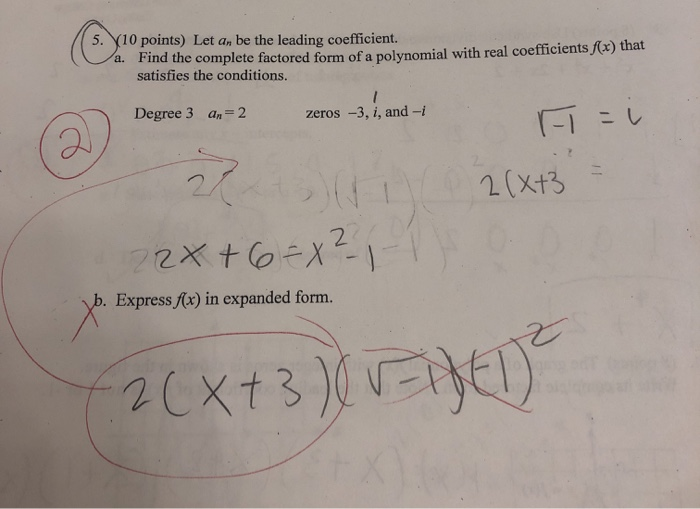 5. (10 points) Let aₙ be the leading coefficient.
a. Find the complete factored form of a polynomial with real coefficients f(x) that
satisfies the conditions.
Degree 3 aₙ = 2 zeros −3, i, and −i
√-1 = i
2
2(x+3 =
22x + 6 = x² - 1
X b. Express f(x) in expanded form.
2(x+3)(√-1)(-1)²